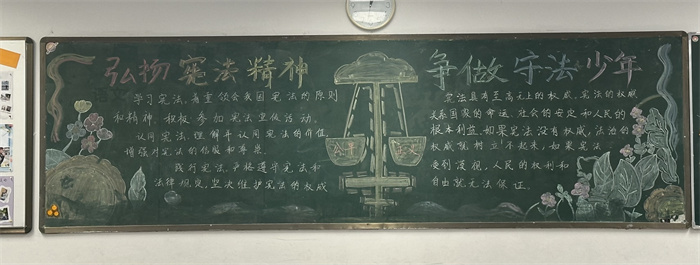 弘扬宪法精神
学习宪法，着重领会我国宪法的原则
和精神，积极参加宪法宣传活动。
认同宪法，理解并认同宪法的价值，
增强对宪法的信服和尊崇。
践行宪法，严格遵守宪法和
法律规定，坚决维护宪法的权威
公平
正义
争做守法少年
宪法具有至高无上的权威，宪法的权威
关系国家的命运、社会的安定和人民的
根本利益，如果宪法没有权威，法治的
权威就树立不起来，如果宪法
受到漠视，人民的权利和
自由就无法保证。